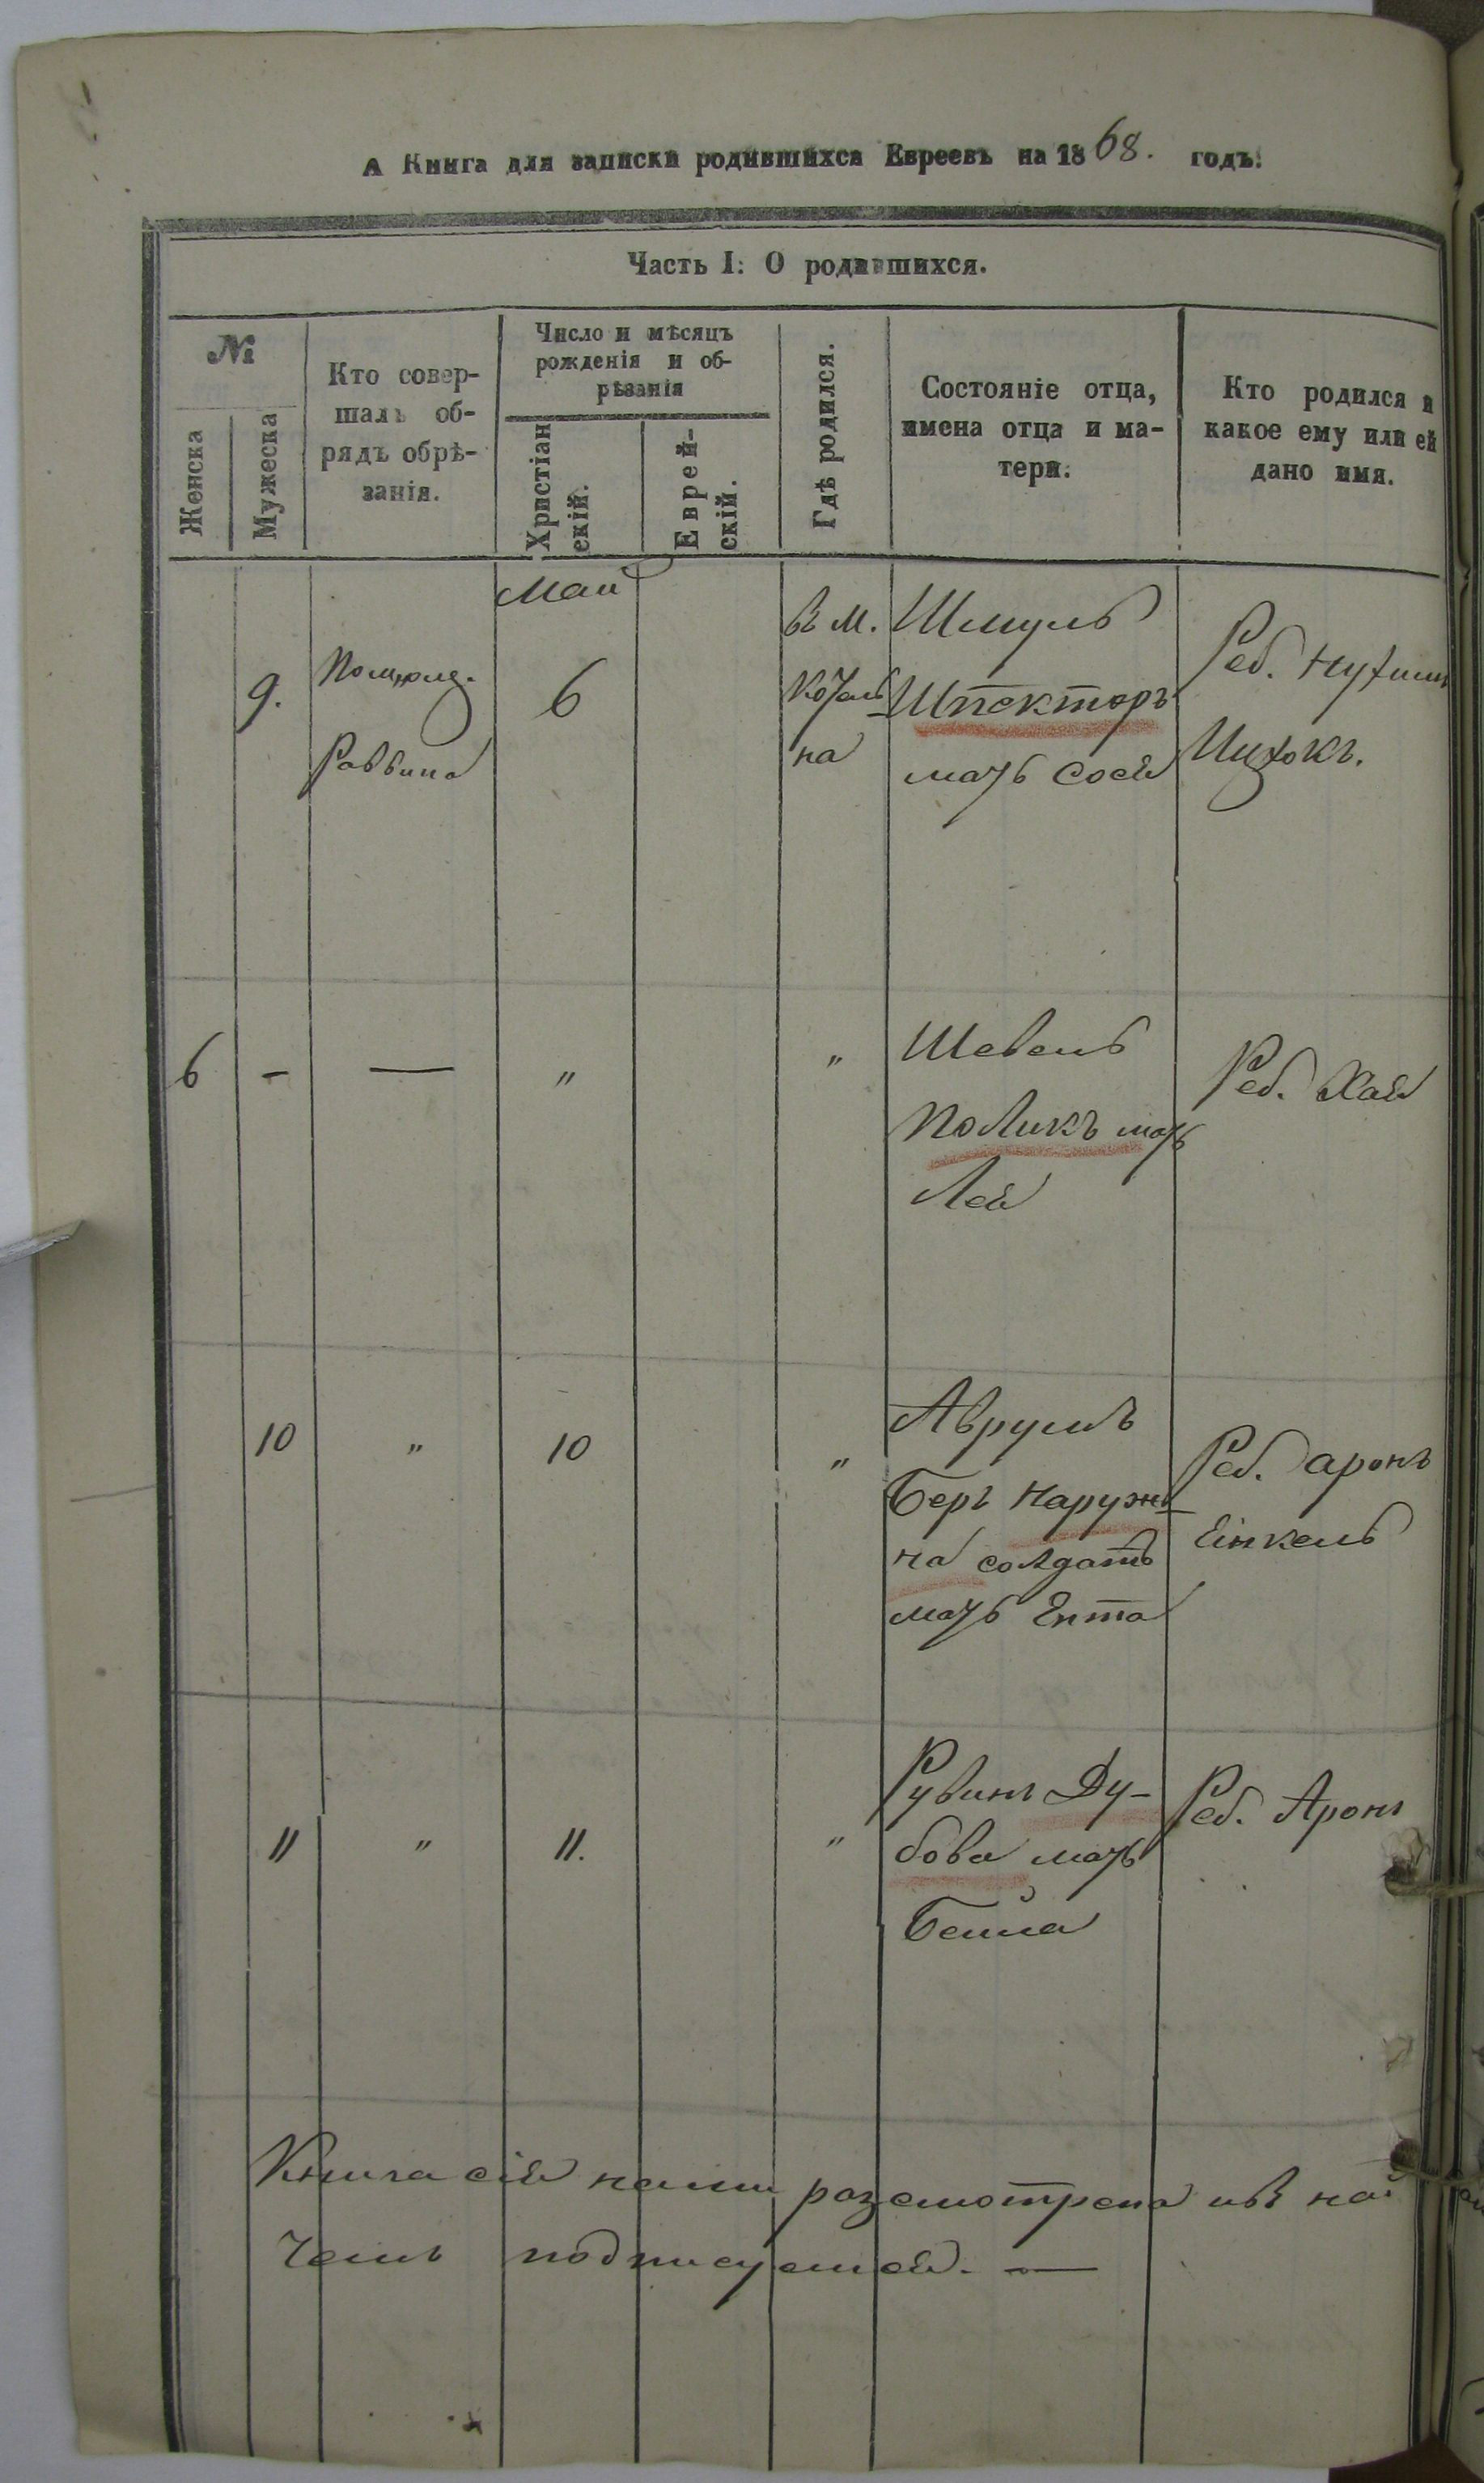 А Книга для записки родившихся Евреевъ на 1868. годъ.
Часть I: О родившихся.
№
Женска
Мужеска
Кто совер-
шалъ об-
рядъ обрѣ-
занія.
Число и мѣсяцъ
рожденія и об-
рѣзанія
Христіан
скій.
Еврей-
скій.
Гдѣ родился.
Состояніе отца,
имена отца и ма-
тери.
Кто родился и
какое ему или ей
дано имя.
Май
9.
Раввина
6
въ м.
на
Шмуль
Шпекторъ
мать Сося
Реб. Нухимъ
Ицхокъ.
6
-
—
"
"
Шевель
Поликъ мать
Лея
Реб. Хая
10
"
10
"
Аврумъ
Беръ Наруж-
на солдатъ
мать Ента
Реб. Аронъ
Еінкель
11
"
11.
"
Рувинъ Ду-
бова мать
Бейла
Реб. Аронъ
Книга сія нами разсмотрена
чемъ подписуемся. —